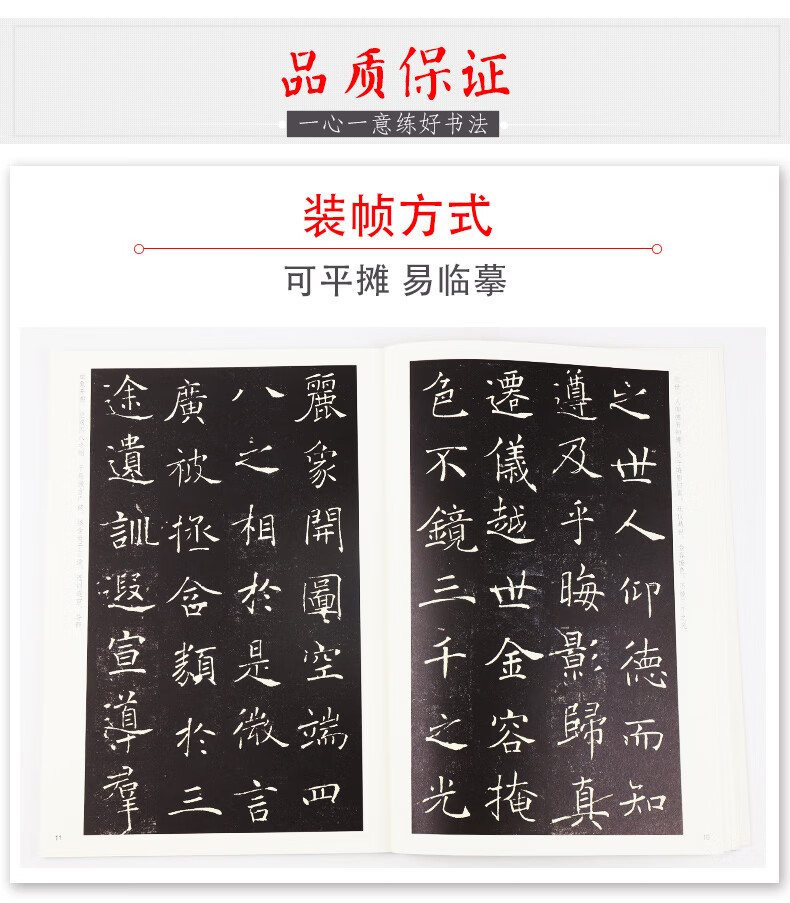 品质保证
一心一意练好书法
装帧方式
可平摊 易临摹
之世人仰德而知
遵及乎晦影歸真
遷儀越世金容掩
色不鏡三千之光
麗象開圖空端四
八之相於是微言
廣被拯含類於三
途遺訓遐宣導羣
11